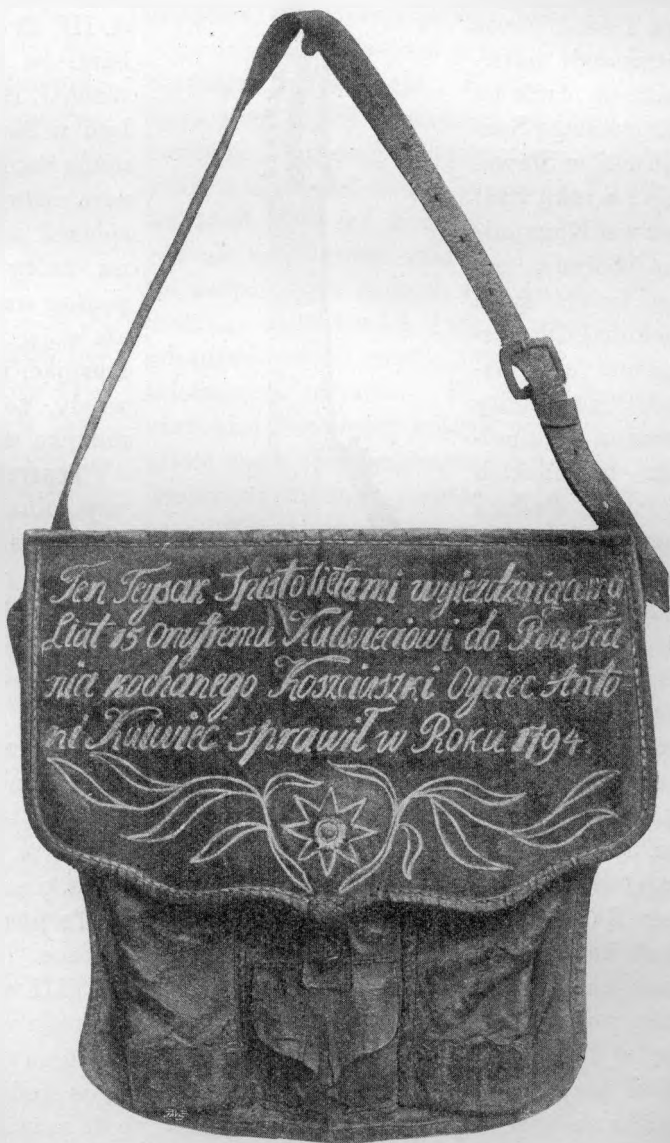 Ten Teysak Spistolietami wyiezdzaiącemu
Liat 15 Onufremu Kulwieciowi do Powsta
nia kochanego Koszciuszki Oyciec Anto
ni Kulwieć sprawił w Roku 1794.